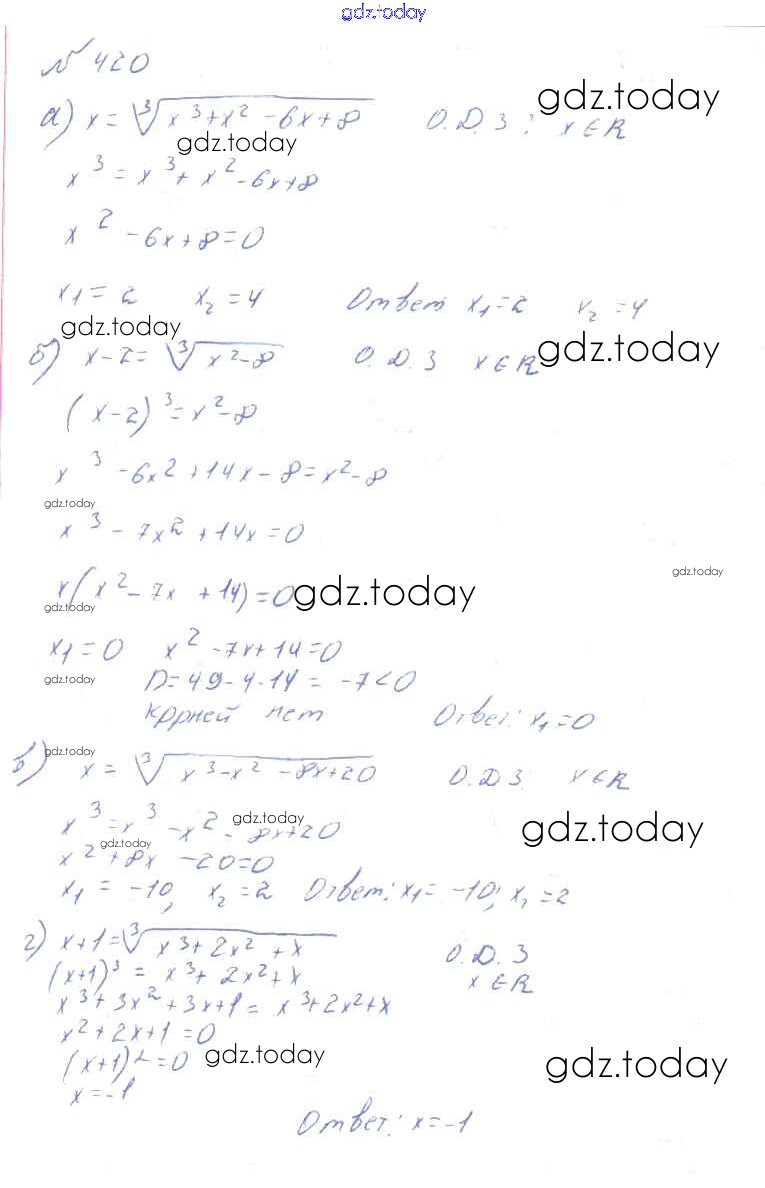 gdz.today
№ 420
а) x = ∛(x³+x²-6x+8) О.Д.З: x∈R gdz.today
gdz.today
x³ = x³+x²-6x+8
x²-6x+8=0
x₁=2 x₂=4 Ответ: x₁=2 x₂=4
gdz.today
б) x-2=∛(x²-8) О.Д.З x∈R gdz.today
(x-2)³=x²-8
x³-6x²+14x-8=x²-8
gdz.today
x³-7x²+14x=0
gdz.today
x(x²-7x+14)=0 gdz.today
gdz.today
x₁=0 x²-7x+14=0
gdz.today D=49-4·14=-7<0
корней нет Ответ: x₁=0
gdz.today
в) x=∛(x³-x²-8x+20) О.Д.З. x∈R
x³=x³-x²-8x+20 gdz.today gdz.today
gdz.today
x²+8x-20=0
x₁=-10; x₂=2 Ответ: x₁=-10; x₂=2
г) x+1=∛(x³+2x²+x) О.Д.З
(x+1)³=x³+2x²+x x∈R
x³+3x²+3x+1=x³+2x²+x
x²+2x+1=0
(x+1)²=0 gdz.today gdz.today
x=-1
Ответ: x=-1